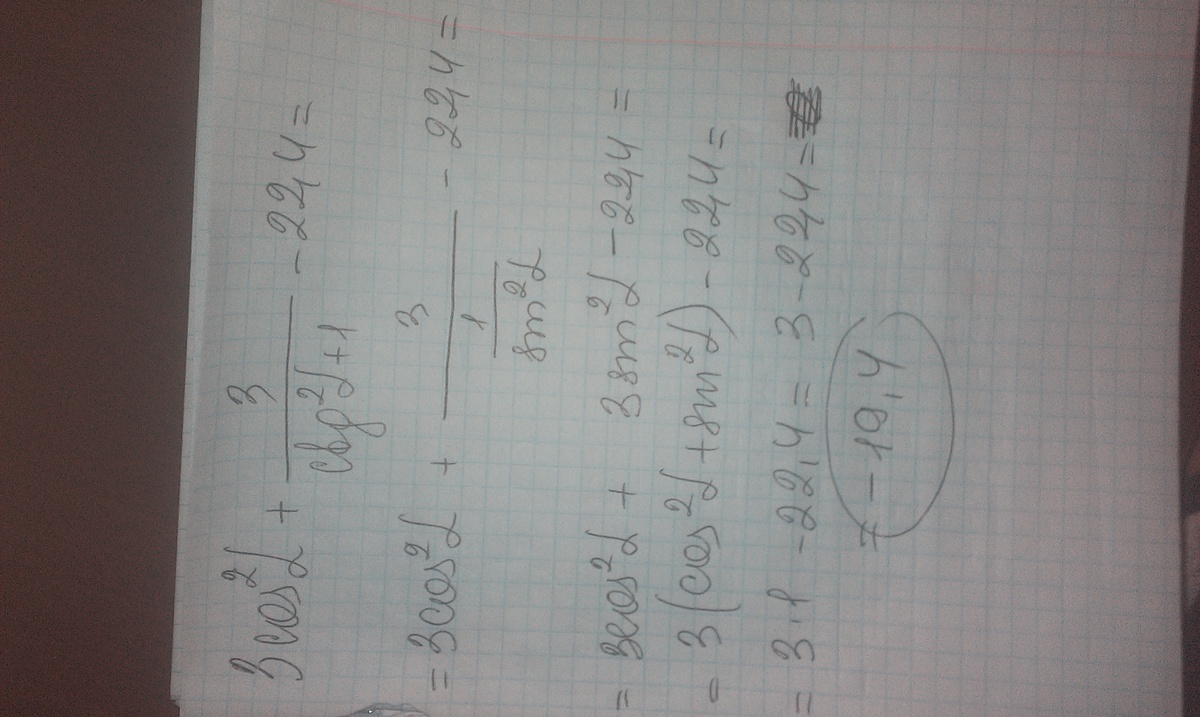 3cos²α + 3/(ctg²α+1) - 22,4 =
= 3cos²α + 3/(1/sin²α) - 22,4 =
= 3cos²α + 3sin²α - 22,4 =
= 3(cos²α + sin²α) - 22,4 =
= 3·1 - 22,4 = 3 - 22,4 =
= -19,4